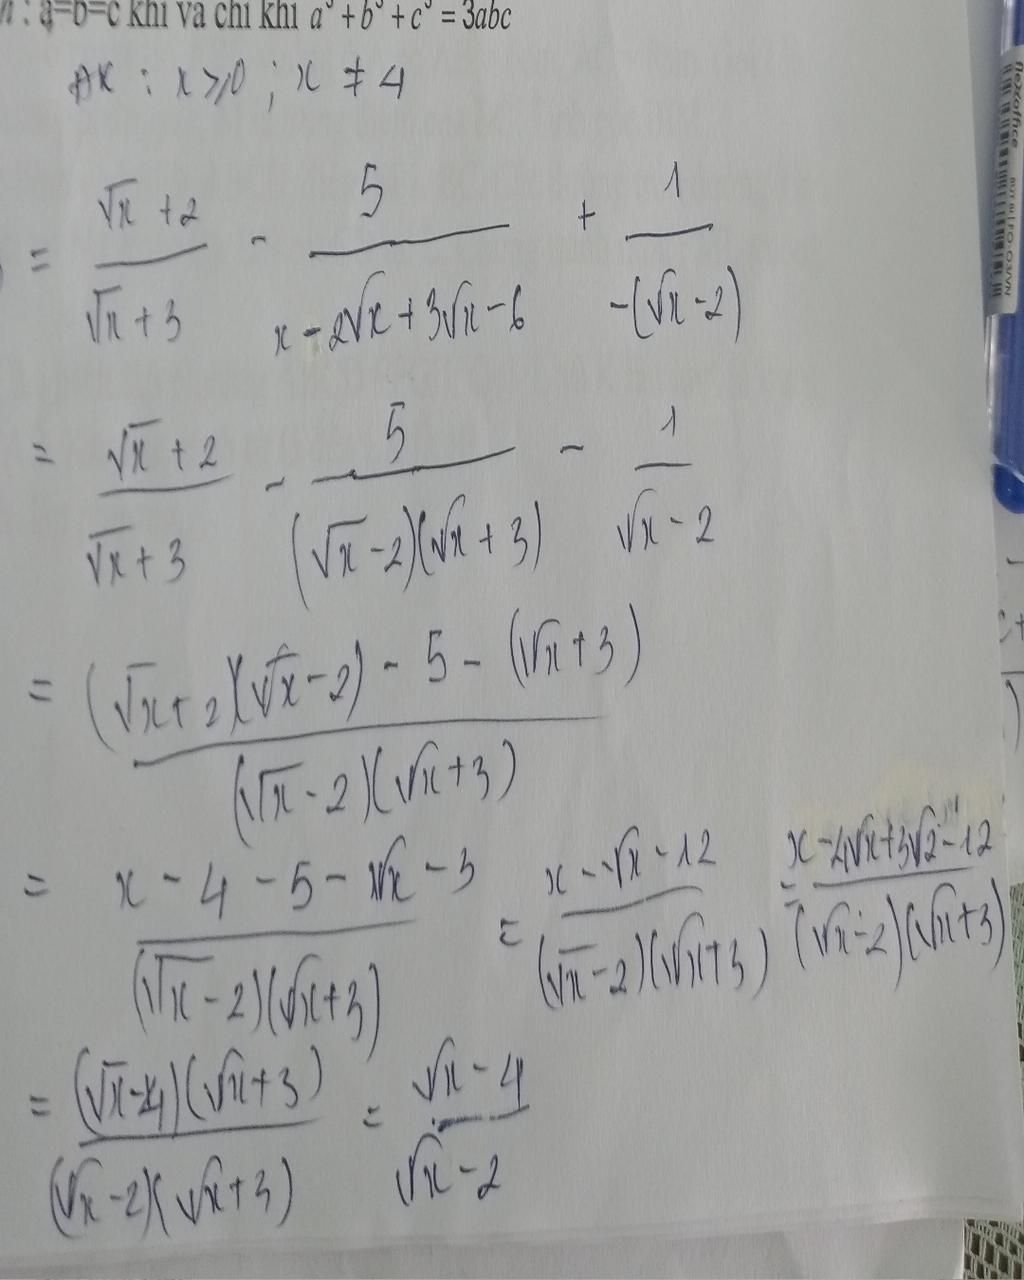 : a=b=c khi và chỉ khi a³ + b³ + c³ = 3abc
ĐK : x ≥ 0 ; x ≠ 4
= (√x + 2)/(√x + 3) - 5/(x - 2√x + 3√x - 6) + 1/(-(√x - 2))
= (√x + 2)/(√x + 3) - 5/((√x - 2)(√x + 3)) - 1/(√x - 2)
= ((√x + 2)(√x - 2) - 5 - (√x + 3))/((√x - 2)(√x + 3))
= (x - 4 - 5 - √x - 3)/((√x - 2)(√x + 3)) = (x - √x - 12)/((√x - 2)(√x + 3)) = (x - 4√x + 3√2 - 12)/((√x - 2)(√x + 3))
= ((√x - 4)(√x + 3))/((√x - 2)(√x + 3)) = (√x - 4)/(√x - 2)
flexoffice